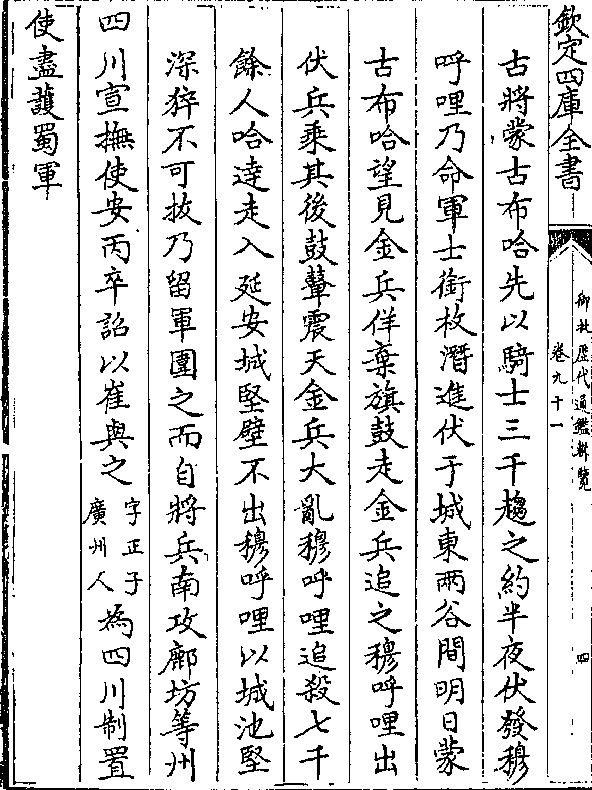 欽定四庫全書
御批歷代通鑑輯覽
卷九十一
四
古將蒙古布哈先以騎士三千趨之約半夜伏發穆
呼哩乃命軍士銜枚潛進伏于城東兩谷間明日蒙
古布哈望見金兵佯棄旗鼓走金兵追之穆呼哩出
伏兵乘其後鼓鼙震天金兵大亂穆呼哩追殺七千
餘人哈達走入延安城堅壁不出穆呼哩以城池堅
深猝不可拔乃留軍圍之而自將兵南攻鄜坊等州
四川宣撫使安丙卒詔以崔與之字正子廣州人為四川制置
使盡護蜀軍